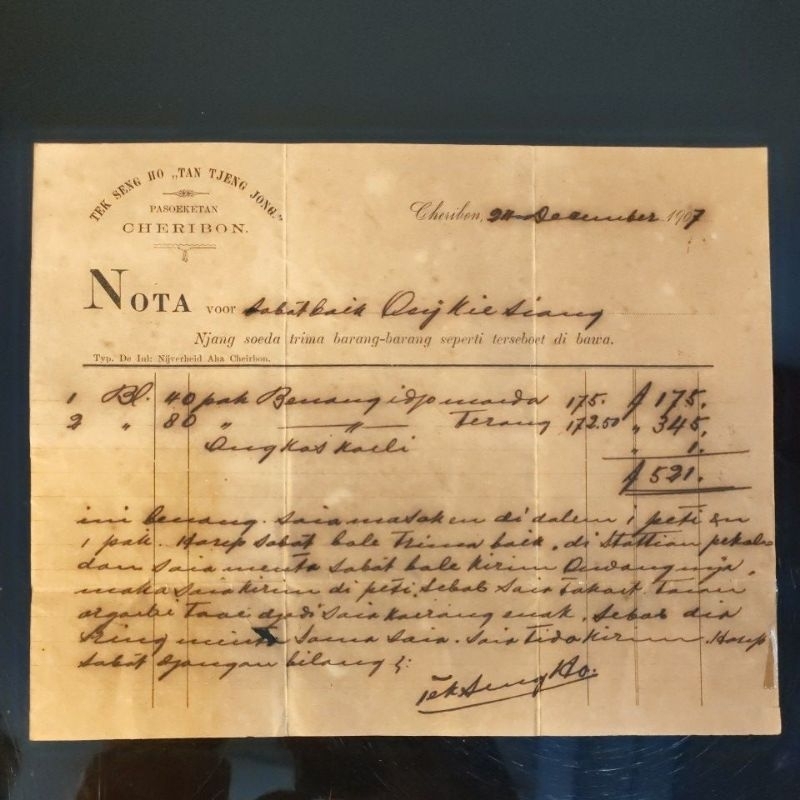 TEK SENG HO „TAN TJENG JONG.”
PASOEKETAN
CHERIBON.
Cheribon, 24 December 1907
NOTA voor sobat baik Oeij Kie Siang
Njang soeda trima barang-barang seperti terseboet di bawa.
Typ. De Inl: Nijverheid Aha Cheirbon.
1 Bl. 40 pak Benang idjo moeda 175. ƒ 175.
2 „ 80 „ „ Terang 172.50 „ 345.
Ongkos koeli „ 1.
ƒ 521.
ini benang saia masoken di dalem 1 peti en
1 pak. Harep sobat bole trima baik, di Stattion
dan saia menta sobat bole kirim oewangnja,
maka saia kirim di peti, Sebab saia takoet
djadi saia koerang enak, Sebab dia
Sring minta sama saia. saia tida kirim. Harep
sobat djangan bilang
Tek Seng Ho.